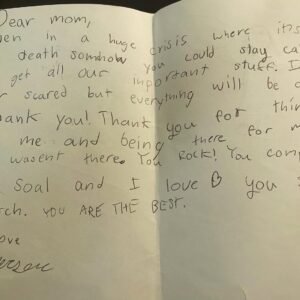 Dear mom,
en in a huge crisis where it's
death somhow you could stay ca
get all our important stuff. I
r scared but everything will be o
hank you! Thank you for thin
me and being there for m
wasent there. You ROCK! You comp
Soal and I love you
rch. YOU ARE THE BEST.
ove